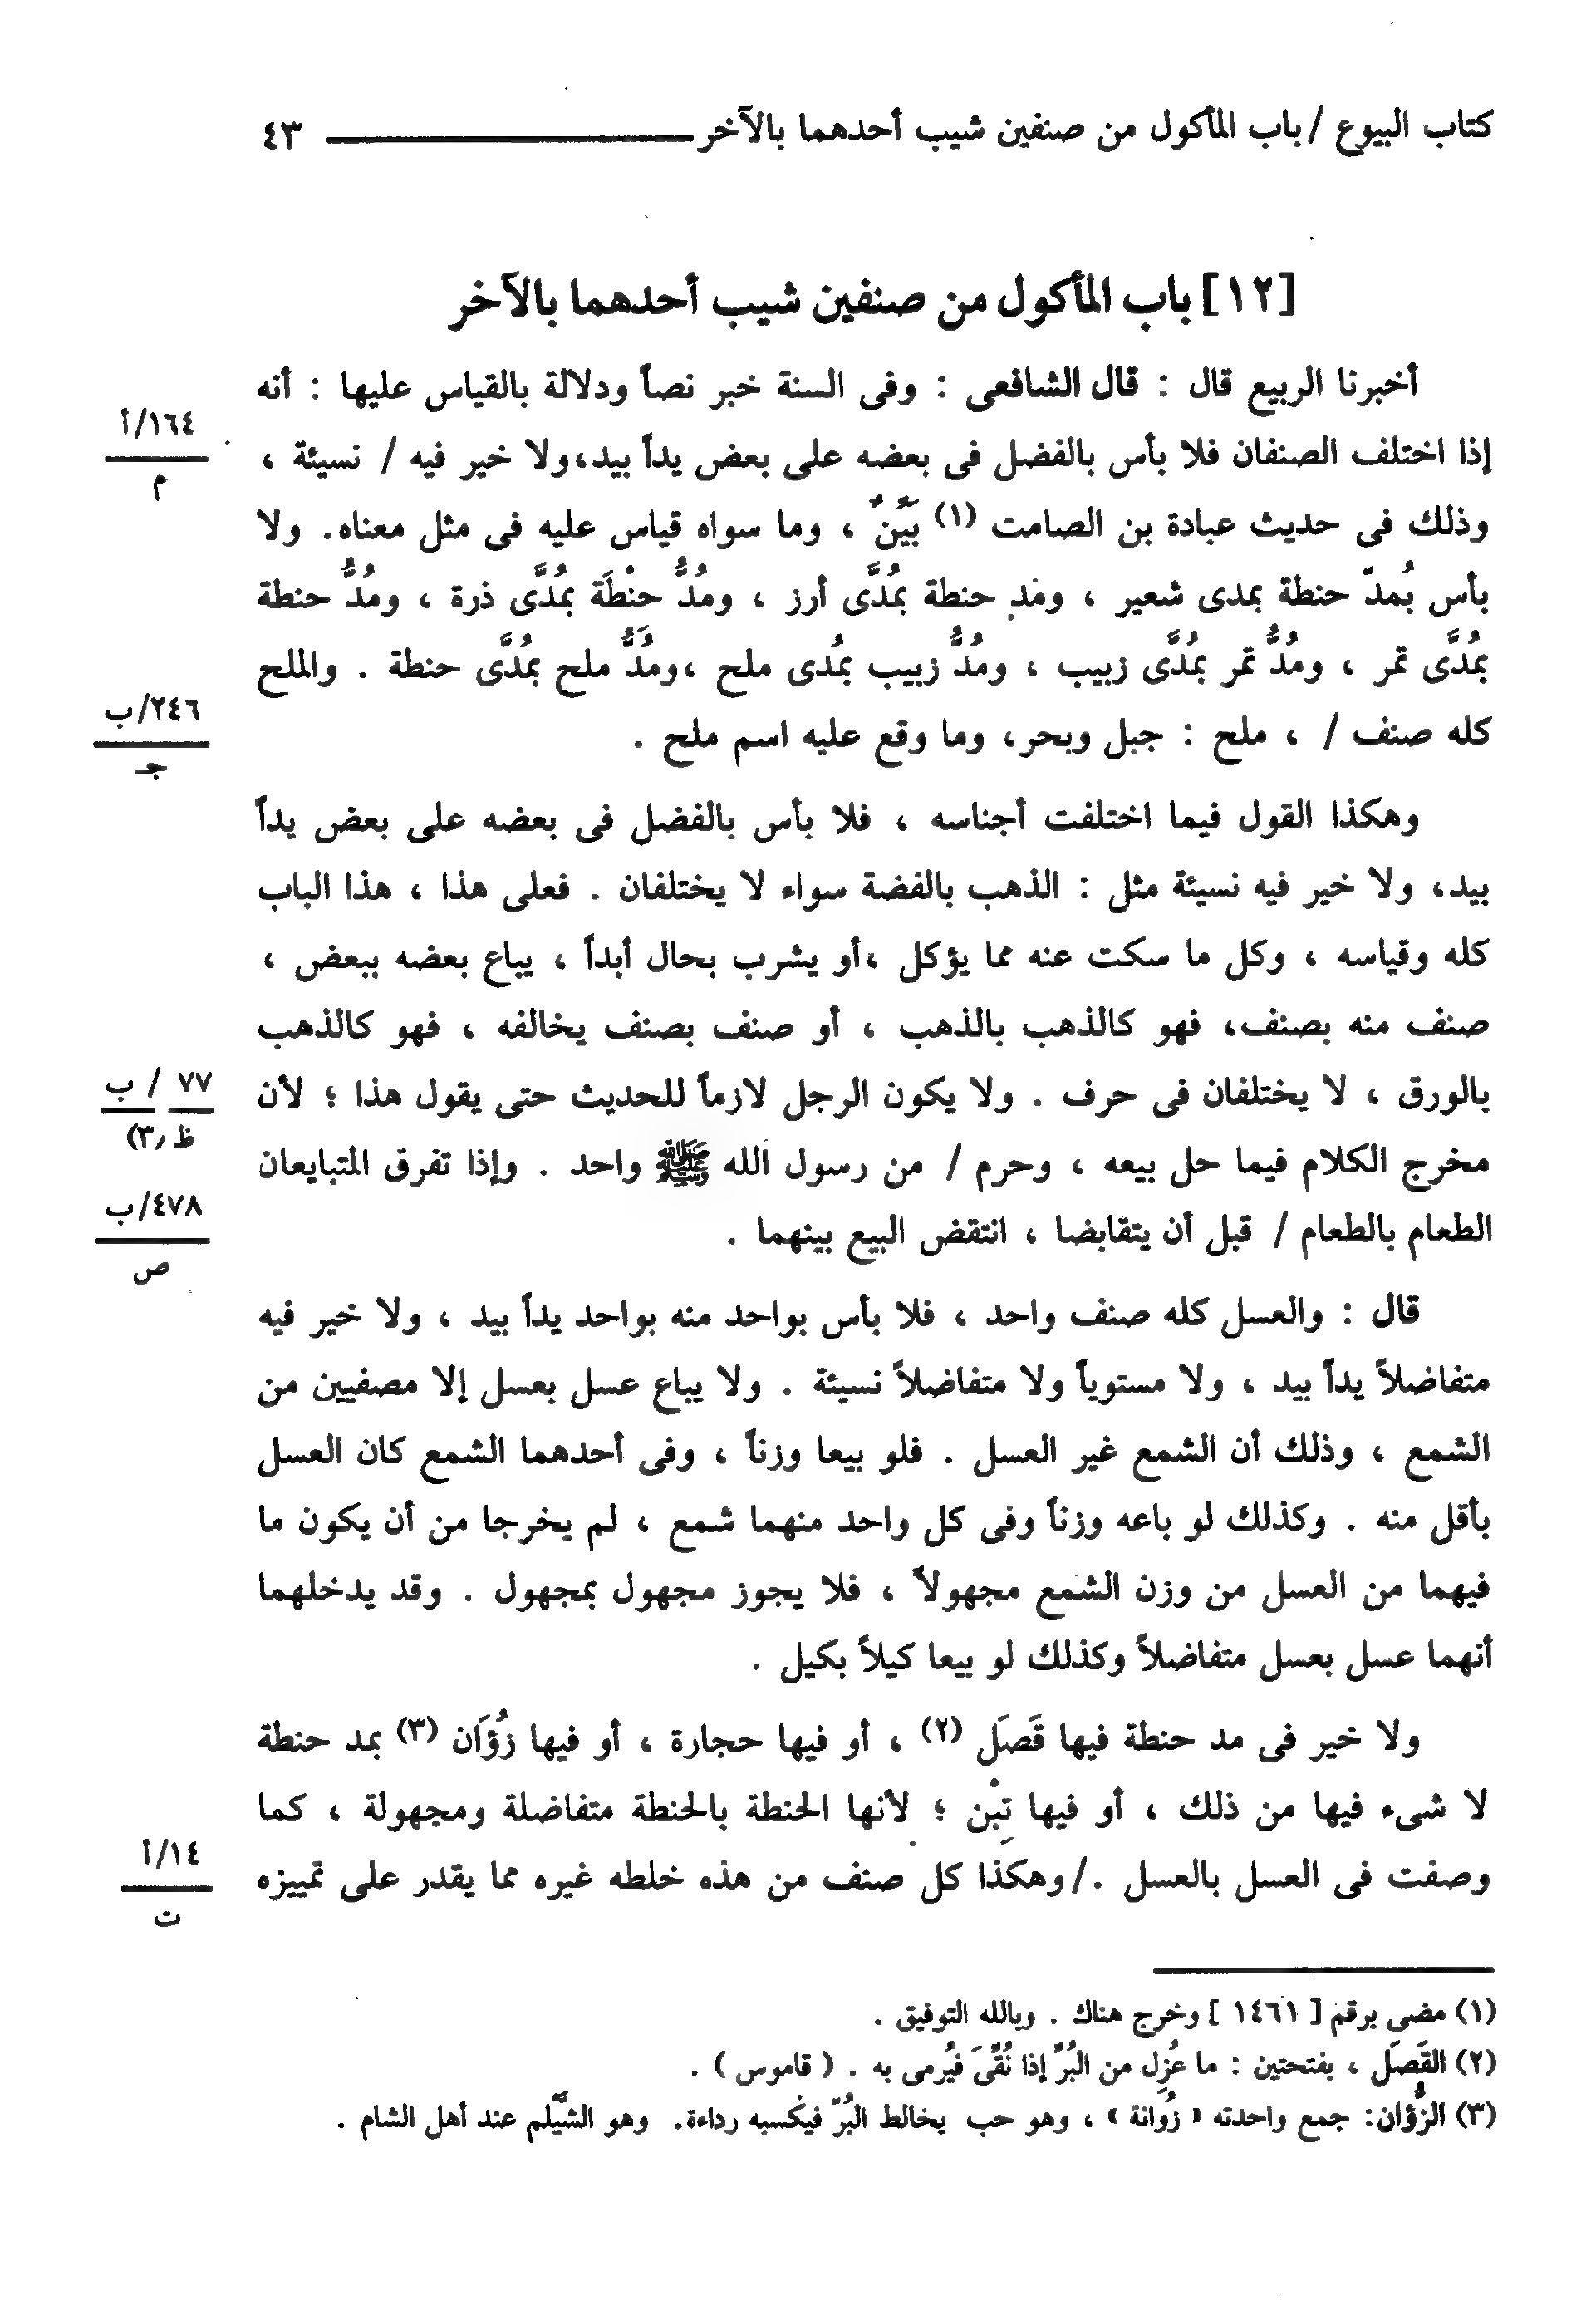 كتاب البيوع / باب المأكول من صنفين شيب أحدهما بالآخر ـــــــ ٤٣
[١٢] باب المأكول من صنفين شيب أحدهما بالآخر
أخبرنا الربيع قال : قال الشافعى : وفى السنة خبر نصاً ودلالة بالقياس عليها : أنه
إذا اختلف الصنفان فلا بأس بالفضل فى بعضه على بعض يداً بيد،ولا خير فيه / نسيئة ،
١٦٤/أ
م
وذلك فى حديث عبادة بن الصامت (١) بَيِّنٌ ، وما سواه قياس عليه فى مثل معناه. ولا
بأس بُمدّ حنطة بمدى شعير ، ومد حنطة بمُدَّى أرز ، ومُدُّ حنْطَة بمُدَّى ذرة ، ومُدُّ حنطة
بمُدَّى تمر ، ومُدُّ تمر بمُدَّى زبيب ، ومُدُّ زبيب بمُدى ملح ،ومُدُّ ملح بمُدَّى حنطة . والملح
كله صنف / ، ملح : جبل وبحر، وما وقع عليه اسم ملح .
٢٤٦/ب
جـ
وهكذا القول فيما اختلفت أجناسه ، فلا بأس بالفضل فى بعضه على بعض يداً
بيد، ولا خير فيه نسيئة مثل : الذهب بالفضة سواء لا يختلفان . فعلى هذا ، هذا الباب
كله وقياسه ، وكل ما سكت عنه مما يؤكل ،أو يشرب بحال أبداً ، يباع بعضه ببعض ،
صنف منه بصنف، فهو كالذهب بالذهب ، أو صنف بصنف يخالفه ، فهو كالذهب
بالورق ، لا يختلفان فى حرف . ولا يكون الرجل لازماً للحديث حتى يقول هذا ؛ لأن
٧٧ / ب
ظ (٣)
مخرج الكلام فيما حل بيعه ، وحرم / من رسول الله ﷺ واحد . وإذا تفرق المتبايعان
الطعام بالطعام / قبل أن يتقابضا ، انتقض البيع بينهما .
٤٧٨/ب
ص
قال : والعسل كله صنف واحد ، فلا بأس بواحد منه بواحد يداً بيد ، ولا خير فيه
متفاضلاً يداً بيد ، ولا مستوياً ولا متفاضلاً نسيئة . ولا يباع عسل بعسل إلا مصفيين من
الشمع ، وذلك أن الشمع غير العسل . فلو بيعا وزناً ، وفى أحدهما الشمع كان العسل
بأقل منه . وكذلك لو باعه وزناً وفى كل واحد منهما شمع ، لم يخرجا من أن يكون ما
فيهما من العسل من وزن الشمع مجهولاً ، فلا يجوز مجهول بمجهول . وقد يدخلهما
أنهما عسل بعسل متفاضلاً وكذلك لو بيعا كيلاً بكيل .
ولا خير فى مد حنطة فيها قَصَل (٢) ، أو فيها حجارة ، أو فيها زُؤَان (٣) بمد حنطة
لا شىء فيها من ذلك ، أو فيها تِبْن ؛ لأنها الحنطة بالحنطة متفاضلة ومجهولة ، كما
وصفت فى العسل بالعسل ./ وهكذا كل صنف من هذه خلطه غيره مما يقدر على تمييزه
١٤/أ
ت
(١) مضى برقم [ ١٤٦١ ] وخرج هناك . وبالله التوفيق .
(٢) القَصَل ، بفتحتين : ما عُزِل من البُرِّ إذا نُقِّىَ فيُرمى به . ( قاموس ) .
(٣) الزُّؤان: جمع واحدته « زُوانة » ، وهو حب يخالط البُرّ فيكسبه رداءة. وهو الشَّيْلم عند أهل الشام .